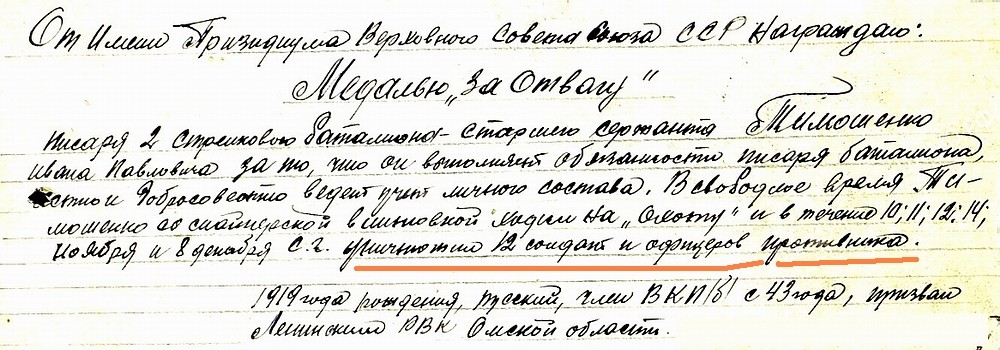 От Имени Призидиума Верховного Совета Союза ССР Награждаю:
Медалью „За Отвагу"
писаря 2 стрелкового батальона старшего сержанта Тимошенко
Ивана Павловича за то, что он выполняет обязанности писаря батальона,
честно и добросовестно ведет учет личного состава. В свободное время Ти-
мошенко со снайперской винтовкой ходил на „Охоту" и в течение 10; 11; 12; 14;
ноября и 8 декабря с.г. уничтожил 12 солдат и офицеров противника.
1919 года рождения, русский, член ВКП(б) с 43 года, призван
Ленинским РВК Омской области.